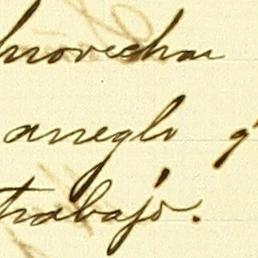 provechar
arreglo q'
trabajo.